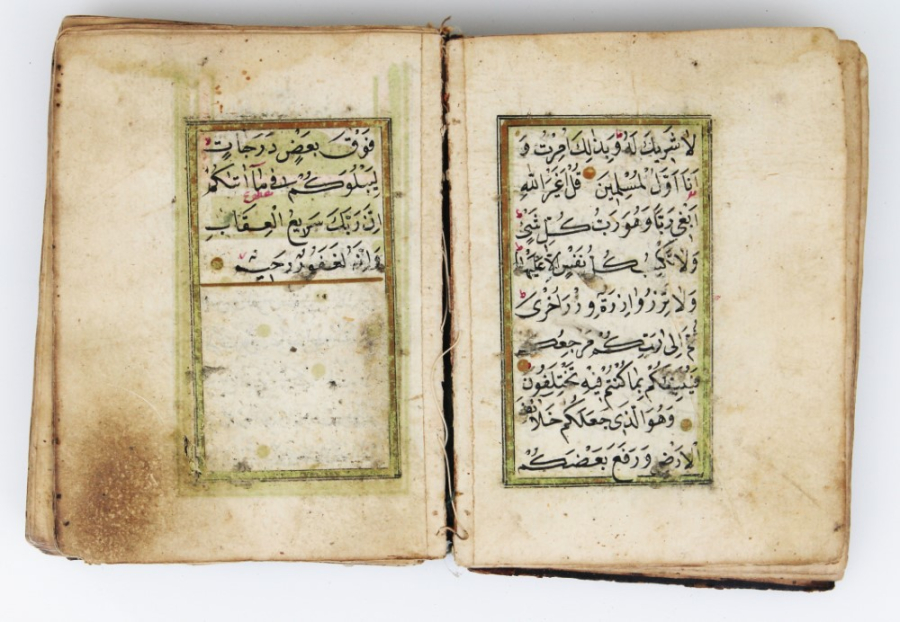 لَا شَرِيكَ لَهُ وَبِذَلِكَ اُمِرْتُ وَ
اَنَا اَوَّلُ الْمُسْلِمِينَ قُلْ اَغَيْرَ اللهِ
اَبْغِي رَبًّا وَهُوَ رَبُّ كُلِّ شَيْءٍ
وَلَا تَكْسِبُ كُلُّ نَفْسٍ اِلَّا عَلَيْهَا
وَلَا تَزِرُ وَازِرَةٌ وِزْرَ اُخْرَى
ثُمَّ اِلَى رَبِّكُمْ مَرْجِعُكُمْ
فَيُنَبِّئُكُمْ بِمَا كُنْتُمْ فِيهِ تَخْتَلِفُونَ
وَهُوَ الَّذِي جَعَلَكُمْ خَلَائِفَ
الْاَرْضِ وَرَفَعَ بَعْضَكُمْ
فَوْقَ بَعْضٍ دَرَجَاتٍ
لِيَبْلُوَكُمْ فِي مَا اٰتٰيكُمْ
اِنَّ رَبَّكَ سَرِيعُ الْعِقَابِ
وَاِنَّهُ لَغَفُورٌ رَحِيمٌ